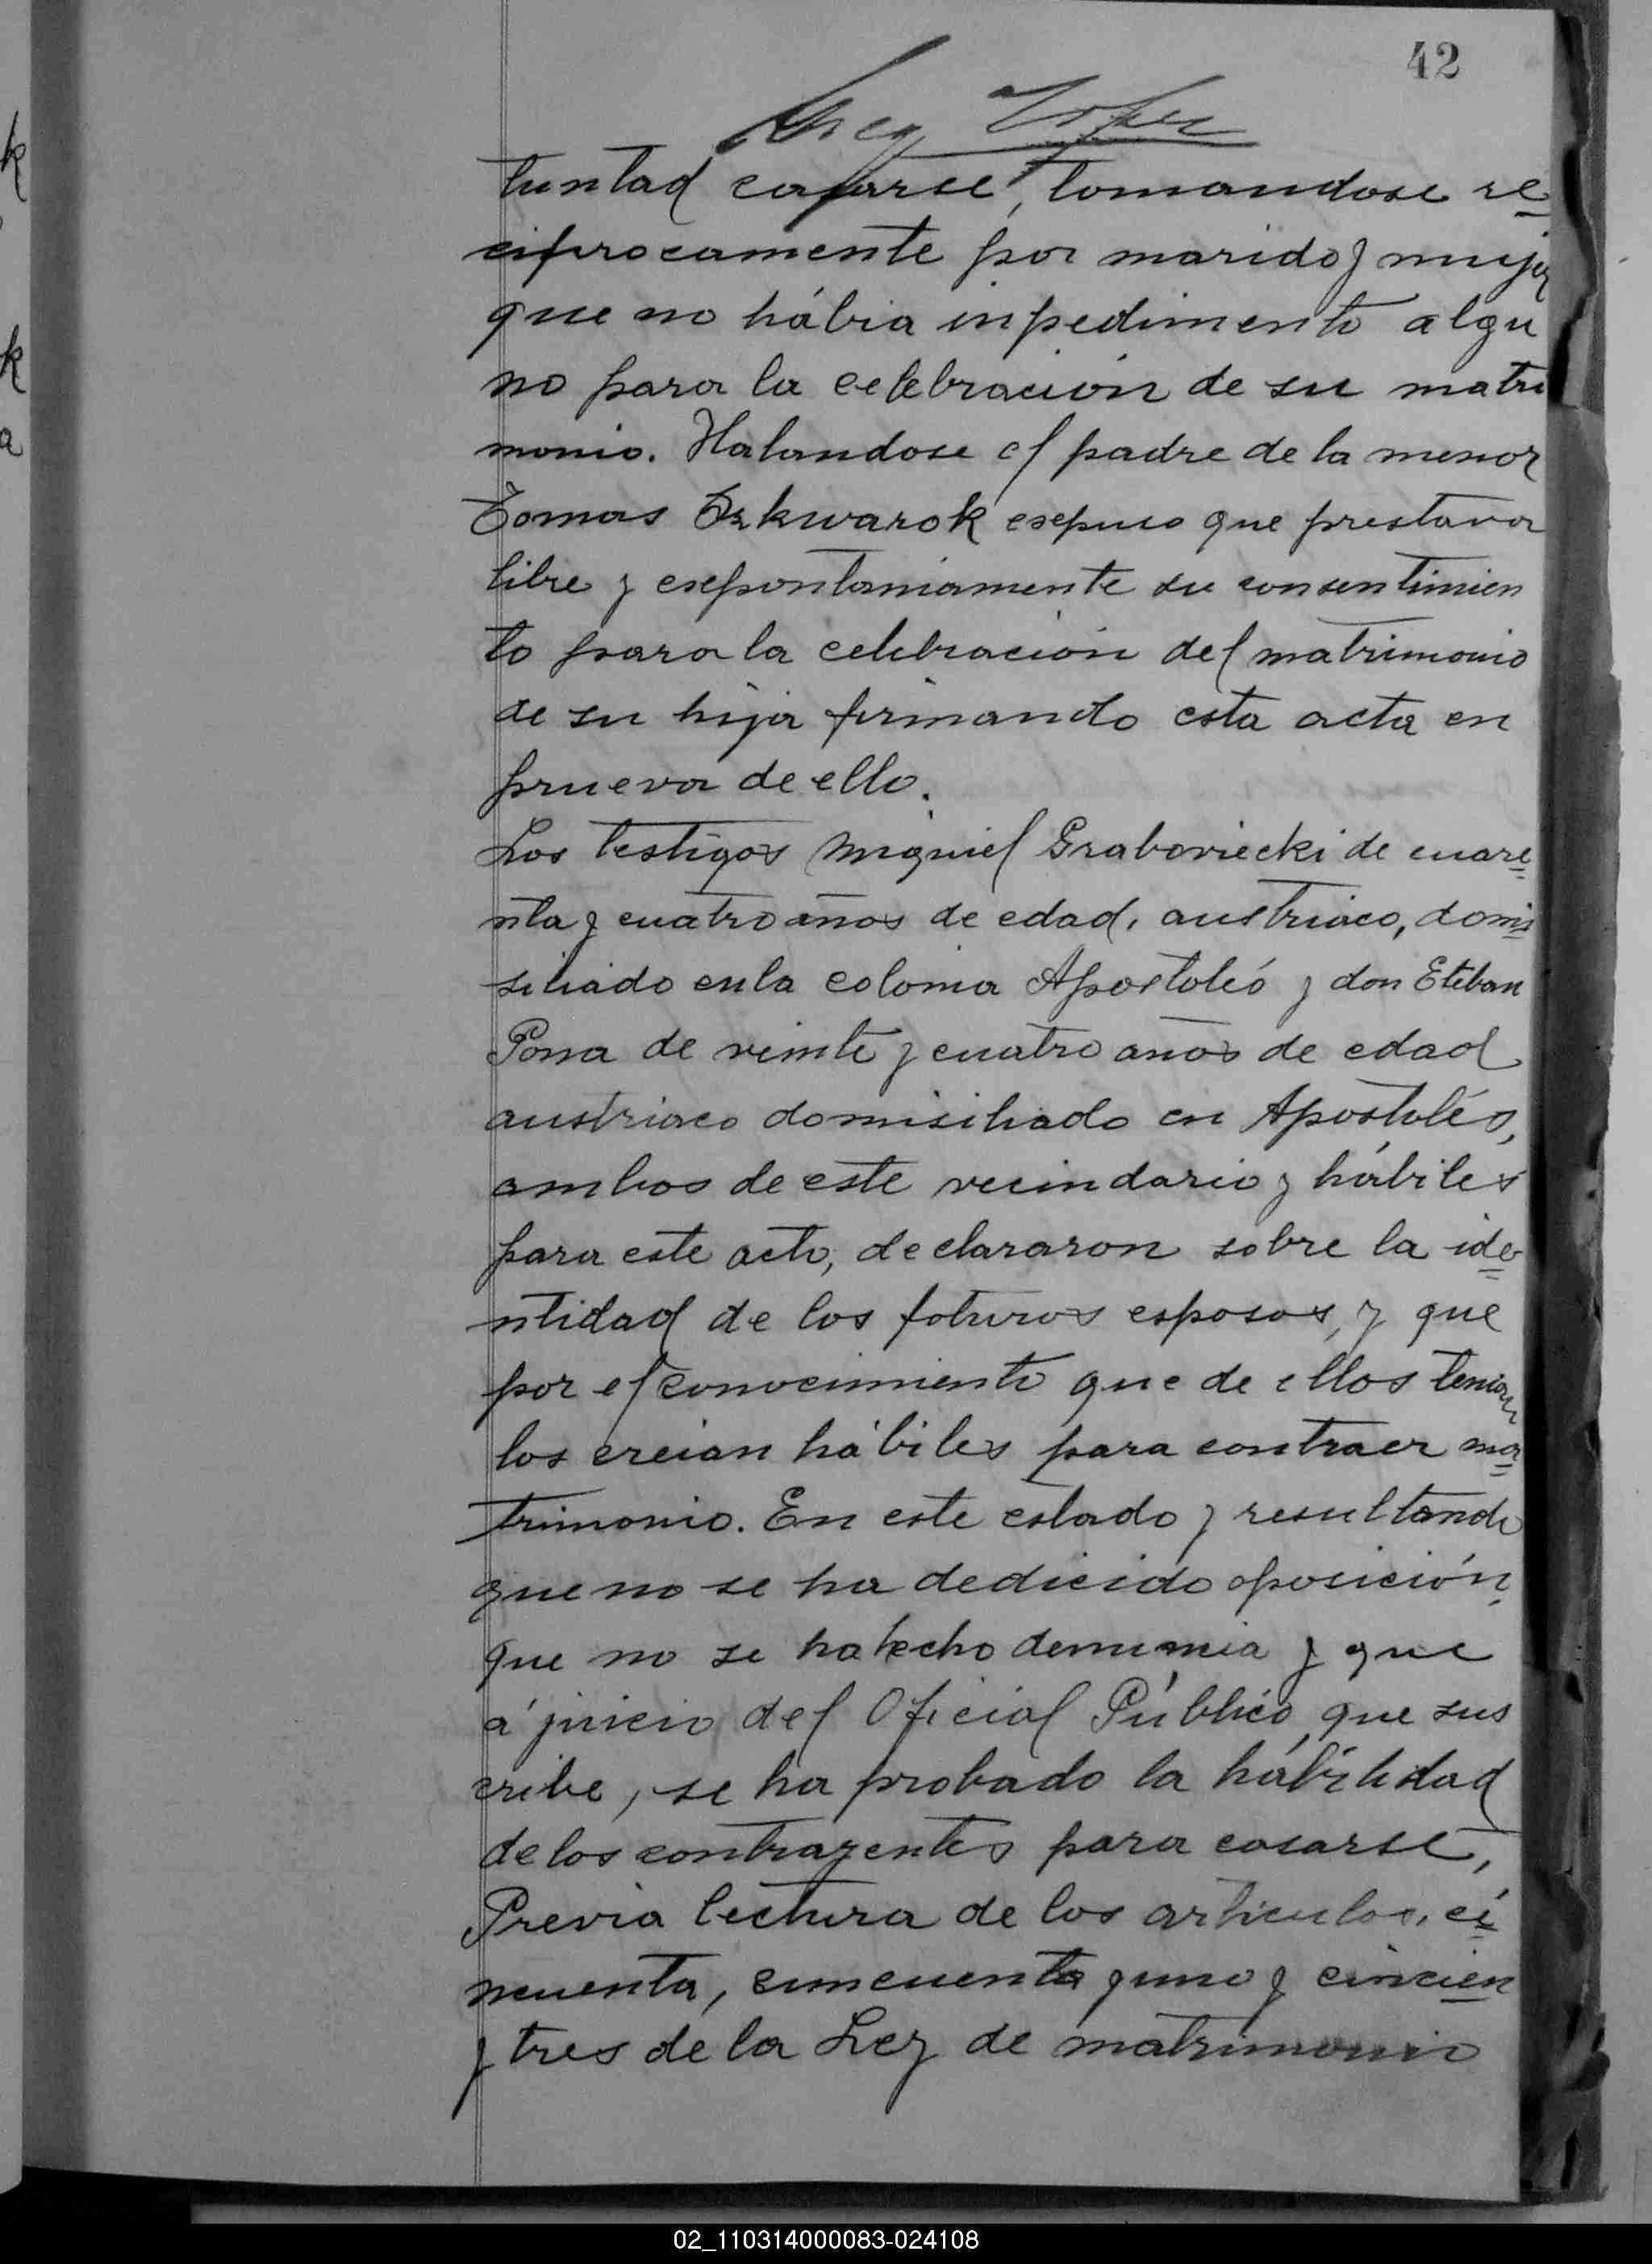 42
tuntad casarse, tomandose re
ciprocamente por marido y mujer
que no hábia inpedimento algu
no para la celebracion de su matri
monio. Halandose el padre de la menor
Tomas Ozkwarok esepuso que prestava
libre y esepontaniamente su consentimien
to para la celebracion del matrimonio
de su hija firmando esta acta en
prueva de ello.
Los testigos Miguiel Graboviecki de cuare
nta y cuatro años de edad, austriaco, domi
siliado en la colonia Apostolés y don Eteban
Pona de veinte y cuatro años de edad
austriaco domisiliado en Apostolés,
ambos de este vecindario y hábiles
para este acto, declararon sobre la ide
ntidad de los foturos esposos, y que
por el conocimiento que de ellos tenian
los creian hábiles para contraer ma
trimonio. En este estado y resultando
que no se ha dedicido oposición,
que no se ha hecho denuncia y que
á juicio del Oficial Público que sus
cribe, se ha probado la hábilidad
de los contrayentes para casarse,
Previa lectura de los articulos, ci
ncuenta, cuncuenta y uno y cincuen
y tres de la Ley de matrimonio
02_110314000083-024108
k
k
a